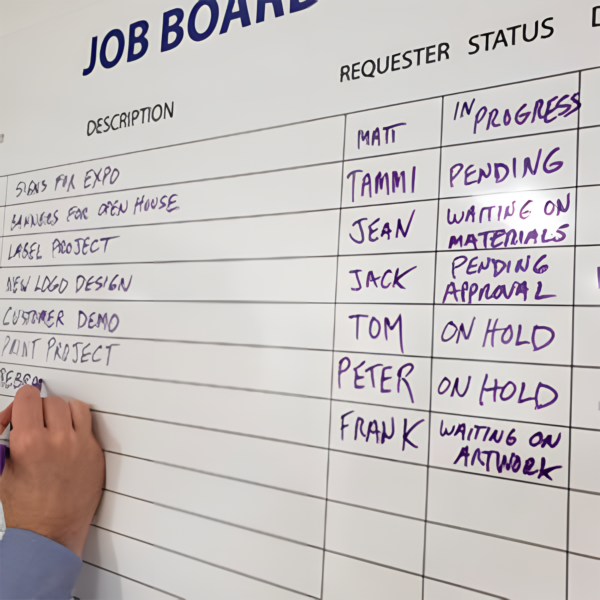 JOB BOARD
DESCRIPTION REQUESTER STATUS
SIGNS FOR EXPO MATT IN PROGRESS
BANNERS FOR OPEN HOUSE TAMMI PENDING
LABEL PROJECT JEAN WAITING ON
MATERIALS
NEW LOGO DESIGN JACK PENDING
APPROVAL
CUSTOMER DEMO TOM ON HOLD
PRINT PROJECT PETER ON HOLD
REBRA FRANK WAITING ON
ARTWORK